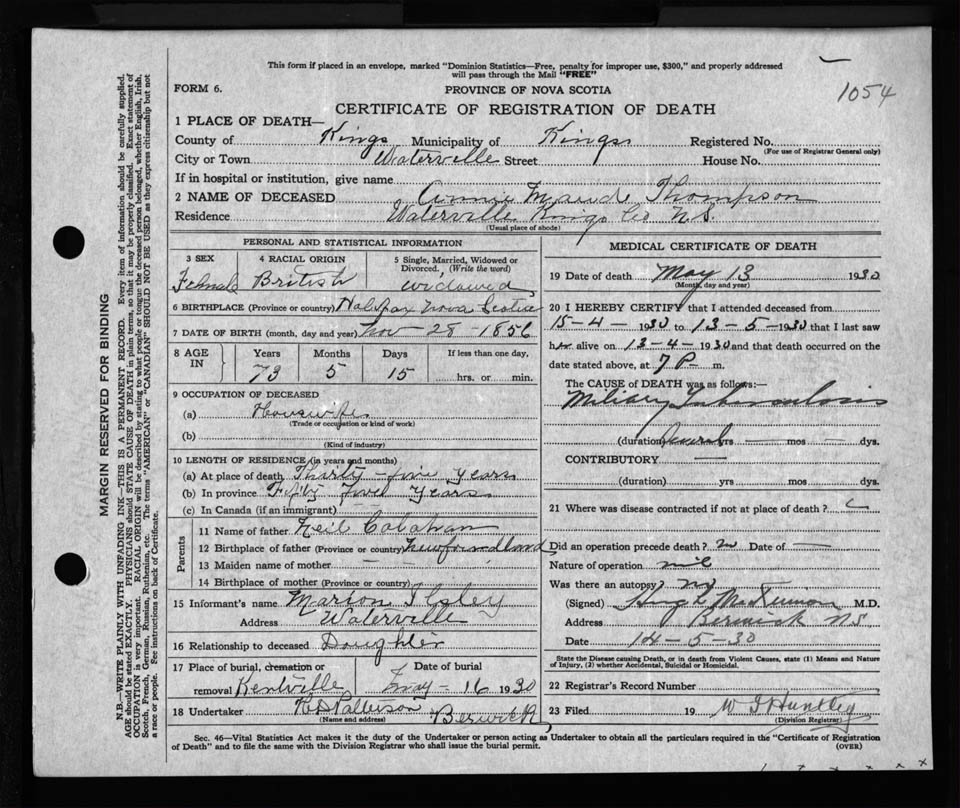 This form if placed in an envelope, marked "Dominion Statistics—Free, penalty for improper use, $300," and properly addressed
will pass through the Mail "FREE"
1054
FORM 6.
PROVINCE OF NOVA SCOTIA
CERTIFICATE OF REGISTRATION OF DEATH
1 PLACE OF DEATH—
County of Kings Municipality of Kings Registered No.
(For use of Registrar General only)
City or Town Waterville Street House No.
If in hospital or institution, give name
2 NAME OF DECEASED Annie Maude Thompson
Residence Waterville Kings Co N.S.
(Usual place of abode)
PERSONAL AND STATISTICAL INFORMATION
3 SEX Female
4 RACIAL ORIGIN British
5 Single, Married, Widowed or Divorced, (Write the word) widowed
6 BIRTHPLACE (Province or country) Halifax Nova Scotia
7 DATE OF BIRTH (month, day and year) Nov - 28 - 1856
8 AGE IN Years 73 Months 5 Days 15 If less than one day, hrs. or min.
9 OCCUPATION OF DECEASED
(a) Housewife
(Trade or occupation or kind of work)
(b)
(Kind of industry)
10 LENGTH OF RESIDENCE (in years and months)
(a) At place of death Thirty - years
(b) In province Fifty years
(c) In Canada (if an immigrant)
Parents
11 Name of father Neil Calahan
12 Birthplace of father (Province or country) Newfoundland
13 Maiden name of mother — —
14 Birthplace of mother (Province or country)
15 Informant's name Marion Ilsley
Address Waterville
16 Relationship to deceased Daughter
17 Place of burial, cremation or removal Kentville
Date of burial May - 16 1930
18 Undertaker Patterson Berwick
(Name and address)
MEDICAL CERTIFICATE OF DEATH
19 Date of death May 13 1930
(Month, day and year)
20 I HEREBY CERTIFY that I attended deceased from
15-4- 1930 to 13-5-1930 that I last saw
her alive on 13-4-1930 and that death occurred on the
date stated above, at 7 P- m.
The CAUSE OF DEATH was as follows:—
Miliary Tuberculosis
(duration) Several yrs — mos — dys.
CONTRIBUTORY —
(duration) yrs mos dys.
21 Where was disease contracted if not at place of death?
Did an operation precede death? no Date of —
Nature of operation nil
Was there an autopsy? no
(Signed) Hugh MacKinnon M.D.
Address Berwick NS
Date 14-5-30
State the Disease causing Death, or in death from Violent Causes, state (1) Means and Nature
of Injury, (2) whether Accidental, Suicidal or Homicidal.
22 Registrar's Record Number
23 Filed 19 Huntley
(Division Registrar)
Sec. 46—Vital Statistics Act makes it the duty of the Undertaker or person acting as Undertaker to obtain all the particulars required in the "Certificate of Registration
of Death" and to file the same with the Division Registrar who shall issue the burial permit.
(OVER)
MARGIN RESERVED FOR BINDING
N.B.—WRITE PLAINLY WITH UNFADING INK—THIS IS A PERMANENT RECORD. Every item of information should be carefully supplied.
AGE should be stated EXACTLY. PHYSICIANS should STATE CAUSE OF DEATH in plain terms, so that it may be properly classified. Exact statement of
OCCUPATION is very important. RACIAL ORIGIN will be described by stating to what people or tongue the deceased person belonged, whether English, Irish,
Scotch, French, German, Russian, Ruthenian, etc. The terms "AMERICAN" or "CANADIAN" SHOULD NOT BE USED as they express citizenship but not
a race or people. See instructions on back of Certificate.